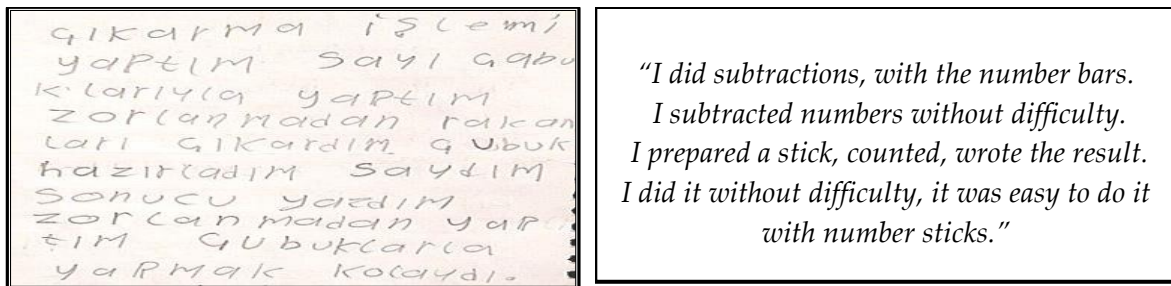 çıkarma işlemi
yaptım sayı çabu
klarıyla yaptım
zorlanmadan rakam
ları çıkardım çubuk
hazırladım saydım
sonucu yazdım
zorlanmadan yap
tım çubuklarla
yapmak kolaydı.
“I did subtractions, with the number bars.
I subtracted numbers without difficulty.
I prepared a stick, counted, wrote the result.
I did it without difficulty, it was easy to do it
with number sticks.”